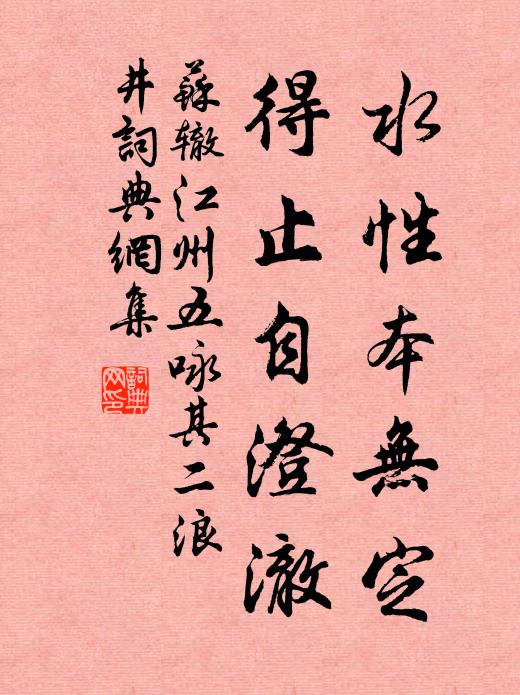 水性本無定
得止自澄澈
蘇辙江州五咏其二浪
井詞典網集
詞典
网印